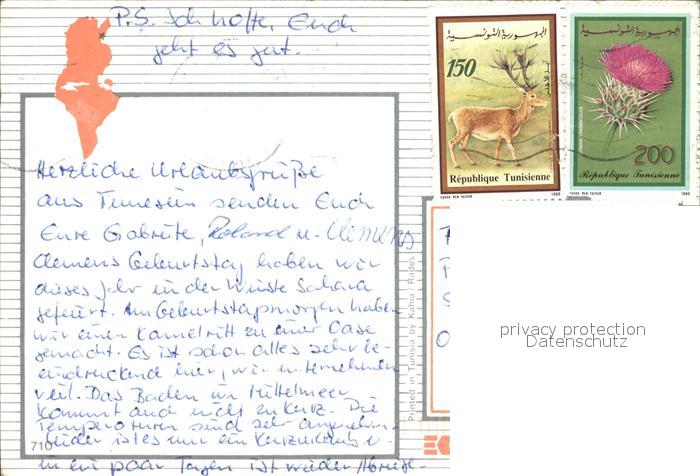 P.S. Ich hoffe, Euch
geht es gut.
Herzliche Urlaubsgrüße
aus Tunesien senden Euch
Eure Gabriele, Roland u. Clemens
Clemens Geburtstag haben wir
dieses Jahr in der Wüste Sahara
gefeiert. Am Geburtstagsmorgen haben
wir einen Kamelritt zu einer Oase
gemacht. Es ist schon alles sehr be-
eindruckend hier, wir unternehmen
viel. Das Baden im Mittelmeer
kommt auch nicht zu kurz. Die
Temperaturen sind sehr angenehm.
Leider ist es nur ein Kurzurlaub u.
in ein paar Tagen ist wieder Abreise.
710
Printed in Tunisia by Kahia / Rades
الجمهورية التونسية
150
République Tunisienne
1990
الجمهورية التونسية
200
République Tunisienne
1990
privacy protection
Datenschutz